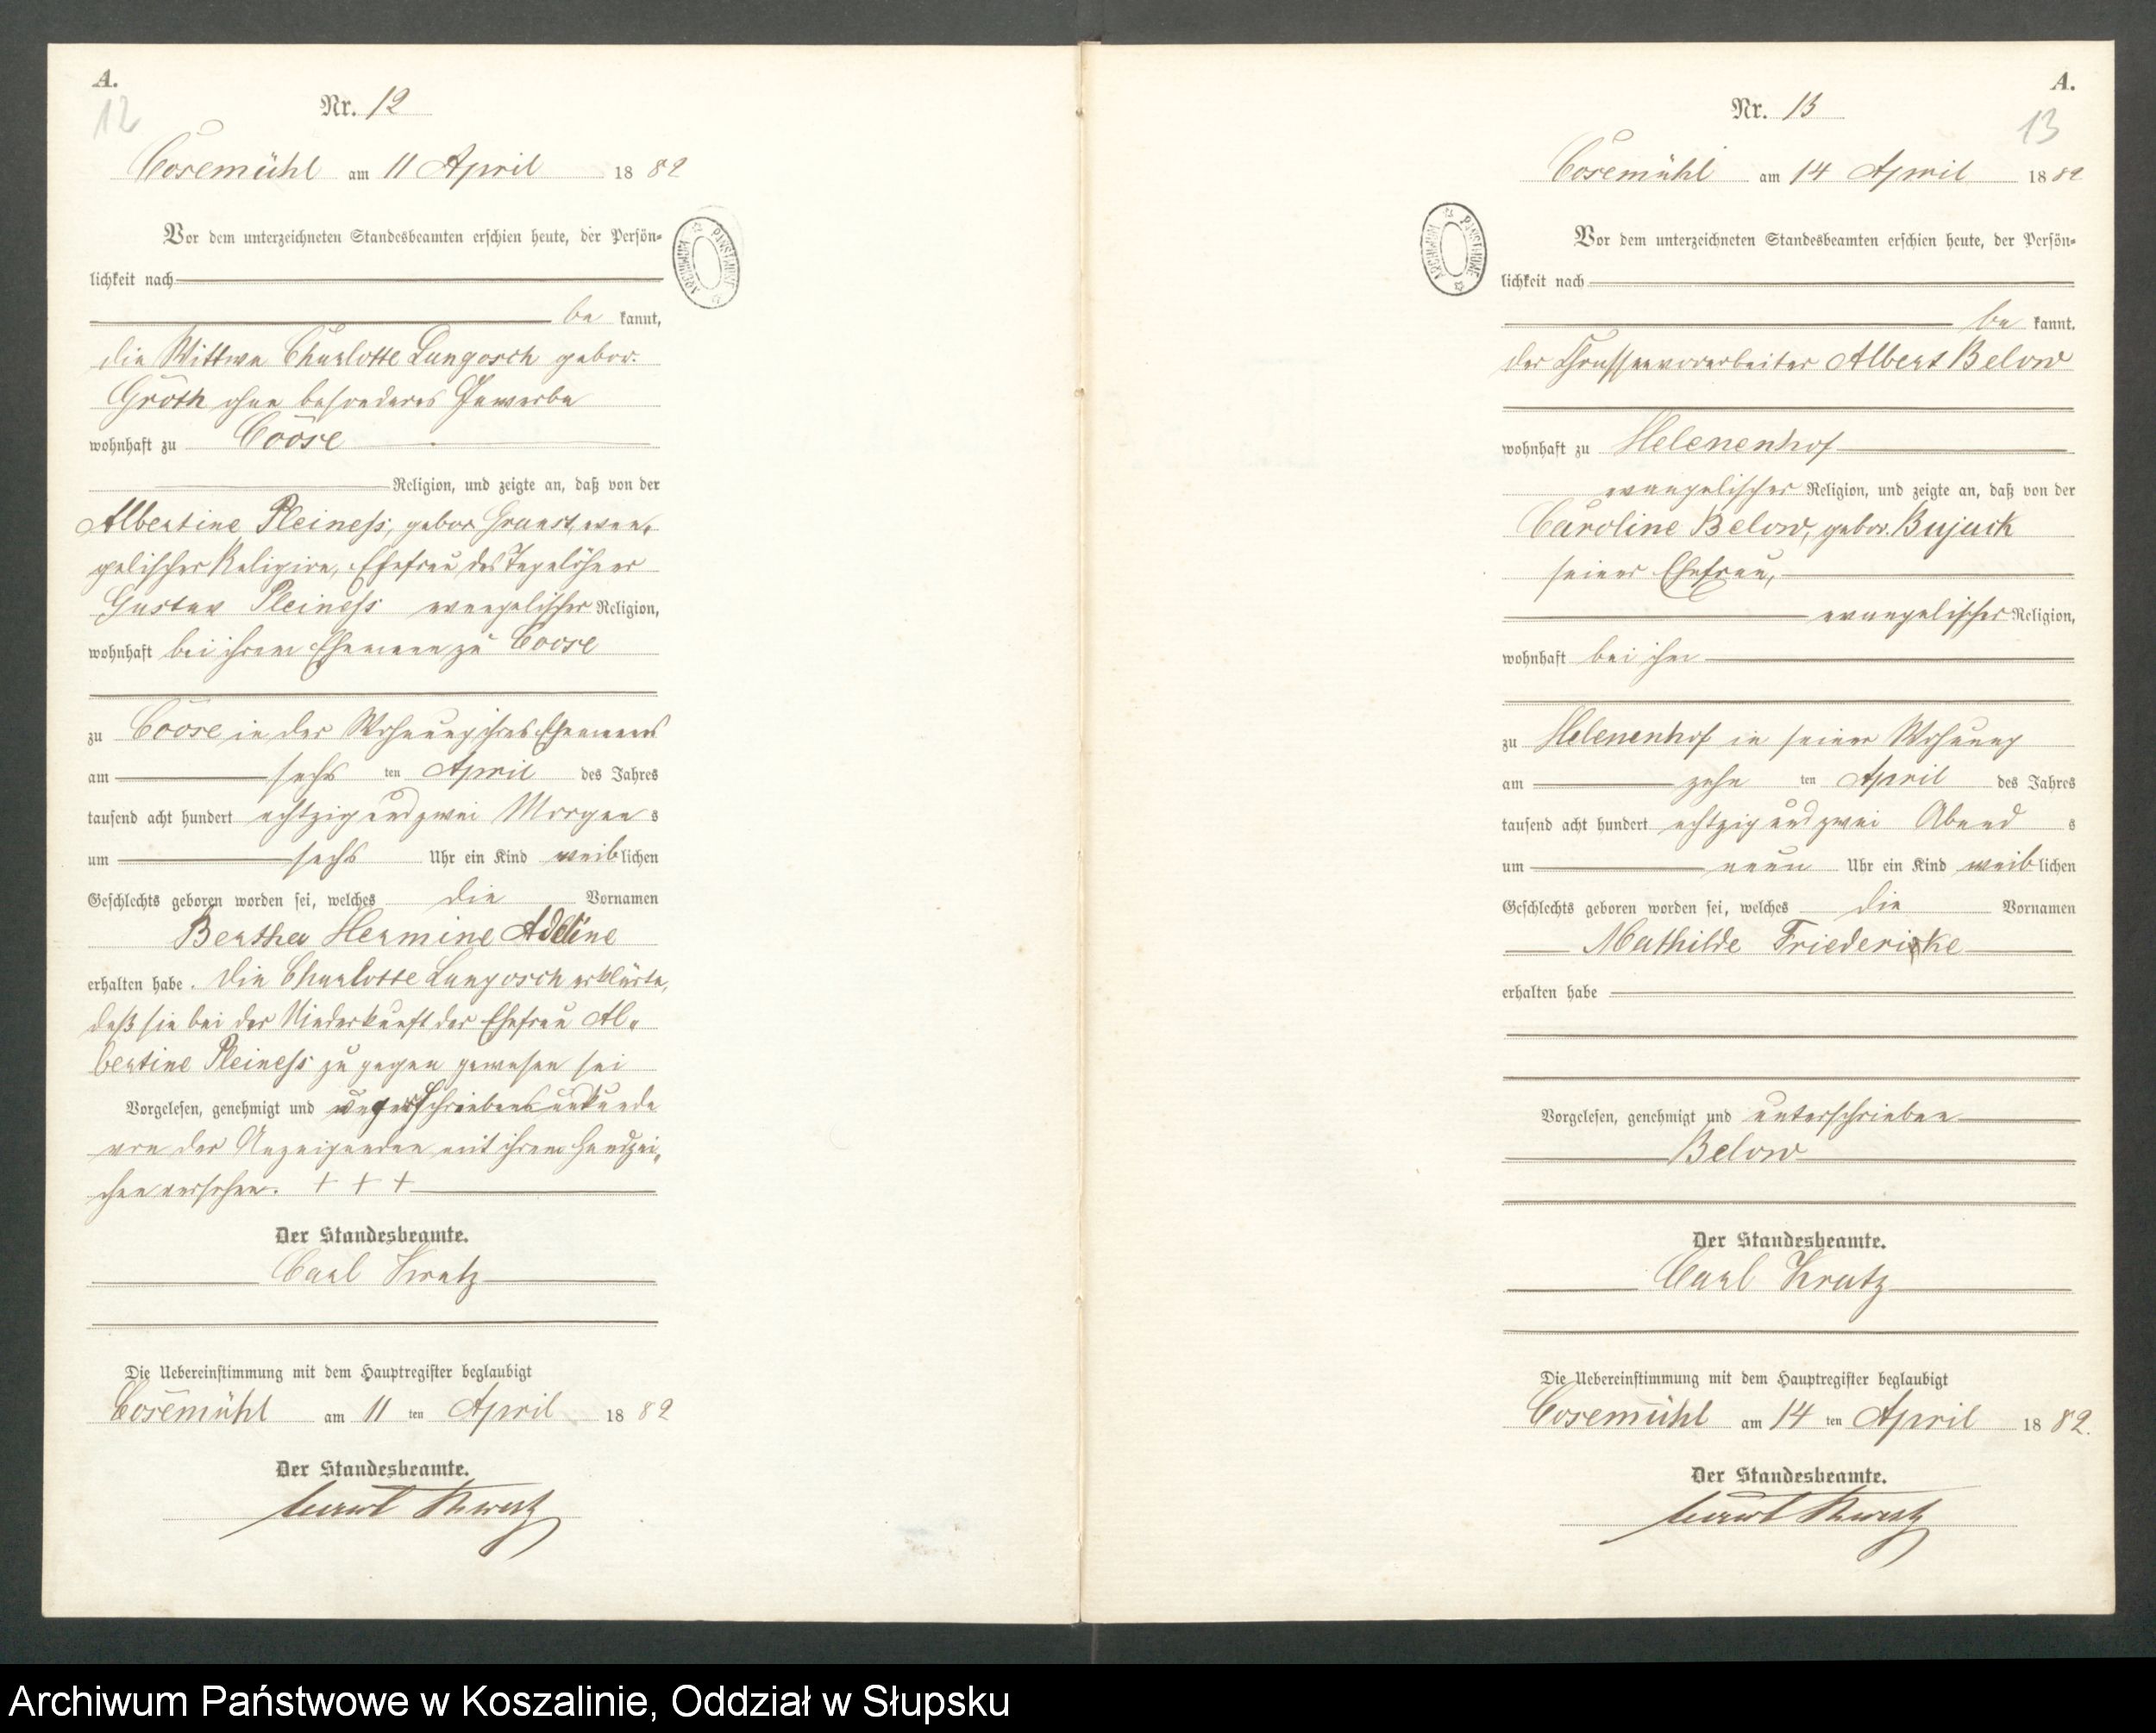 A.
12
Nr. 12
Cosemühl am 11 April 18 82
Vor dem unterzeichneten Standesbeamten erschien heute, der Persön-
lichkeit nach
be kannt,
die Wittwe Charlotte Langosch gebor.
Groth ohne besonderes Gewerbe
wohnhaft zu Coose
Religion, und zeigte an, daß von der
Albertine Pleineß, gebor evan-
gelischer Religion, Ehefrau des Tagelöhner
Gustav Pleineß evangelischer Religion,
wohnhaft bei ihrem Ehemann zu Coose
zu Coose in der Wohnung ihres Ehemanns
am sechs ten April des Jahres
tausend acht hundert achtzig und zwei Morgen s
um sechs Uhr ein Kind weiblichen
Geschlechts geboren worden sei, welches die Vornamen
Bertha Hermine Adeline
erhalten habe. Die Charlotte Langosch erklärte,
daß sie bei der Niederkunft der Ehefrau Al-
bertine Pleineß zu gegen gewesen sei
Vorgelesen, genehmigt und wegen Schreibensunkunde
von der Anzeigenden mit ihrem Handzei-
chen versehen. + + +
Der Standesbeamte.
Carl Kratz
Die Uebereinstimmung mit dem Hauptregister beglaubigt
Cosemühl am 11 ten April 18 82
Der Standesbeamte.
Carl Kratz
A.
13
Nr. 13
Cosemühl am 14 April 18 82
ARCHIWUM PAŃSTWOWE
Vor dem unterzeichneten Standesbeamten erschien heute, der Persön-
lichkeit nach
be kannt.
der Chausseevorarbeiter Albert Below
wohnhaft zu Helenenhof
evangelischer Religion, und zeigte an, daß von der
Caroline Below, gebor. Bujack
seiner Ehefrau,
evangelischer Religion,
wohnhaft bei ihm
zu Helenenhof in seiner Wohnung
am zehn ten April des Jahres
tausend acht hundert achtzig und zwei Abend s
um neun Uhr ein Kind weiblichen
Geschlechts geboren worden sei, welches die Vornamen
Mathilde Friedericke
erhalten habe
Vorgelesen, genehmigt und unterschrieben
Below
Der Standesbeamte.
Carl Kratz
Die Uebereinstimmung mit dem Hauptregister beglaubigt
Cosemühl am 14 ten April 18 82.
Der Standesbeamte.
Carl Kratz
Archiwum Państwowe w Koszalinie, Oddział w Słupsku